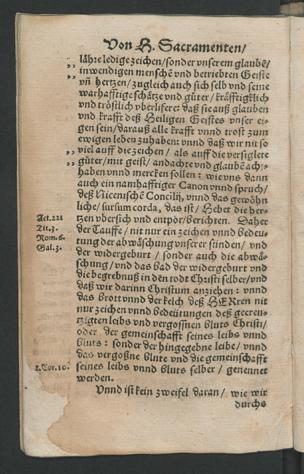 Von H. Sacramenten/
lähre ledige zeichen/ sonder unserem glaubē/
„ inwendigen menschē vnd betriebten Geiste
„ vñ hertzen/ zugleich auch sich selb vnd seine
warhafftige schätze vnd güter/ kräfftigklich
vnd tröstlich vberlifere: daß sie auß glauben
vnd krafft deß Heiligen Geistes vnser ei-
gen sein/ darauß alle krafft vnnd trost zum
ewigen leben zuhaben: vnnd daß wir nit so
„ viel auff die zeichen/ als auff die versiglete
„ güter/ mit geist/ andacht vnd glaubē ach-
haben vnnd mercken sollen: wie vns dann
auch ein namhaffriger Canon vnnd spruch/
deß Nicenischē Concilij, vnnd das gewöhn
liche/ sursum corda, das ist/ Hebet die her-
Act. 22. tzen vbersich vnd entpor/ berichten. Daher
Tit. 3. der Tauffe/ nit nur ein zeichen vnnd bedeu-
Rom. 6. tung der abwäschung vnserer sünden/ vnd
Gal. 3. der widergeburt/ sonder auch die abwä-
schung/ vnd das bad der widergeburt vnd
die begrebnuß in den tod Christi selber/ vnd
daß wir darinn Christum anziehen: vnnd
das brott vnnd der kelch deß HERren nit
nur zeichen vnnd bedeutungen deß gecreu-
tzigten leibs vnd vergoßnen bluts Christi/
oder der gemeinschafft seines leibs vnnd
bluts: sonder der hingegebne leibe/ vnnd
das vergoßne blute vnd die gemeinschafft
1. Cor. 10. seines leibs vnnd bluts selber/ genennet
werden.
Vnnd ist kein zweifel daran/ wie wir
durchs